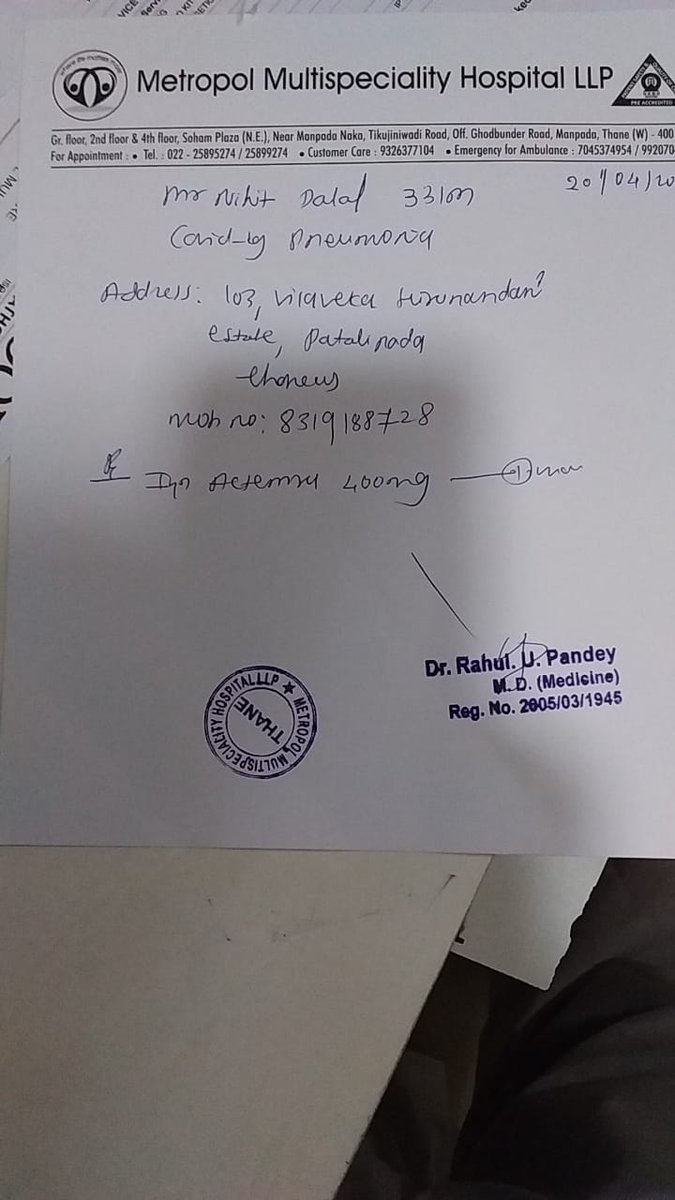 Metropol Multispeciality Hospital LLP
PRE ACCREDITED
Gr. floor, 2nd floor & 4th floor, Soham Plaza (N.E.), Near Manpada Naka, Tikujiniwadi Road, Off. Ghodbunder Road, Manpada, Thane (W) - 400
For Appointment : • Tel. : 022 - 25895274 / 25899274 • Customer Care : 9326377104 • Emergency for Ambulance : 7045374954 / 992070
20/04/20
Mr Nihit Dalal 33/m
Covid-19 Pneumonia
Address: 103, hiranandani
estate, Patlipada
Mob no: 8319188728
Inj Actemra 400mg
Dr. Rahul. U. Pandey
M.D. (Medicine)
Reg. No. 2005/03/1945
METROPOL MULTISPECIALITY HOSPITAL LLP ★
THANE